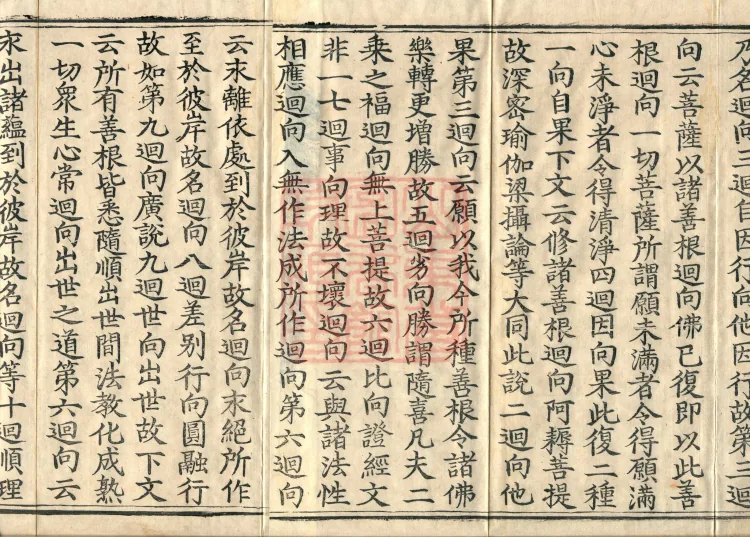 乃名迴向三迴自因行向他因行故第三迴
向云菩薩以諸善根迴向佛已復即以此善
根迴向一切菩薩所謂願未滿者令得願滿
心未淨者令得清淨四迴因向果此復二種
一向自果下文云修諸善根迴向阿耨菩提
故深密瑜伽梁攝論等大同此說二迴向他
果第三迴向云願以我今所種善根令諸佛
樂轉更增勝故五迴劣向勝謂隨喜凡夫二
乘之福迴向無上菩提故六迴比向證經文
非一七迴事向理故不壞迴向云與諸法性
相應迴向入無作法成所作迴向第六迴向
云求離依處到於彼岸故名迴向求絕所作
至於彼岸故名迴向八迴差別行向圓融行
故如第九迴向廣說九迴世向出世故下文
云所有善根皆悉隨順出世間法教化成熟
一切眾生心常迴向出世之道第六迴向云
求出諸蘊到於彼岸故名迴向等十迴順理